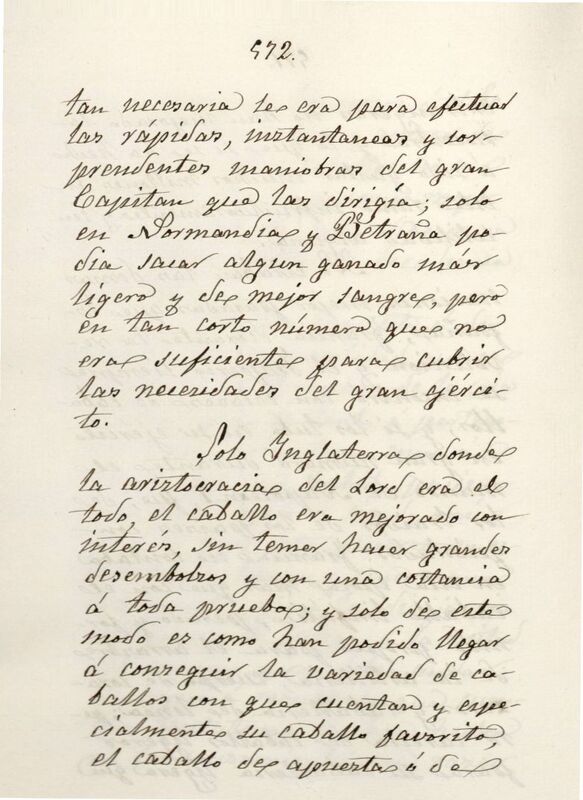 572.
tan necesaria le era para efectuar
las rápidas, instantaneas y sor-
prendentes maniobras del gran
Capitan que las dirigía; solo
en Normandia y Betraña po-
dia sacar algun ganado más
ligero y de mejor sangre, pero
en tan corto número que no
era suficiente para cubrir
las necesidades del gran ejérci-
to.
Solo Inglaterra donde
la aristocracia del Lord era el
todo, el caballo era mejorado con
interés, sin temer hacer grandes
desembolsos y con una costancia
á toda prueba; y solo de este
modo es como han podido llegar
á conseguir la variedad de ca-
ballos con que cuentan y espe-
cialmente su caballo favorito,
el caballo de apuesta ó de